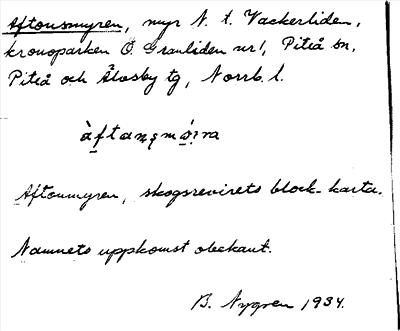 Aftonsmyren, myr N. t. Vackerliden,
kronoparken Ö. Granliden nr 1, Piteå sn,
Piteå och Älvsby tg, Norrb. l.
Aftonmyren, skogsrevirets block-karta.
Namnets uppkomst obekant.
B. Nygren 1934.